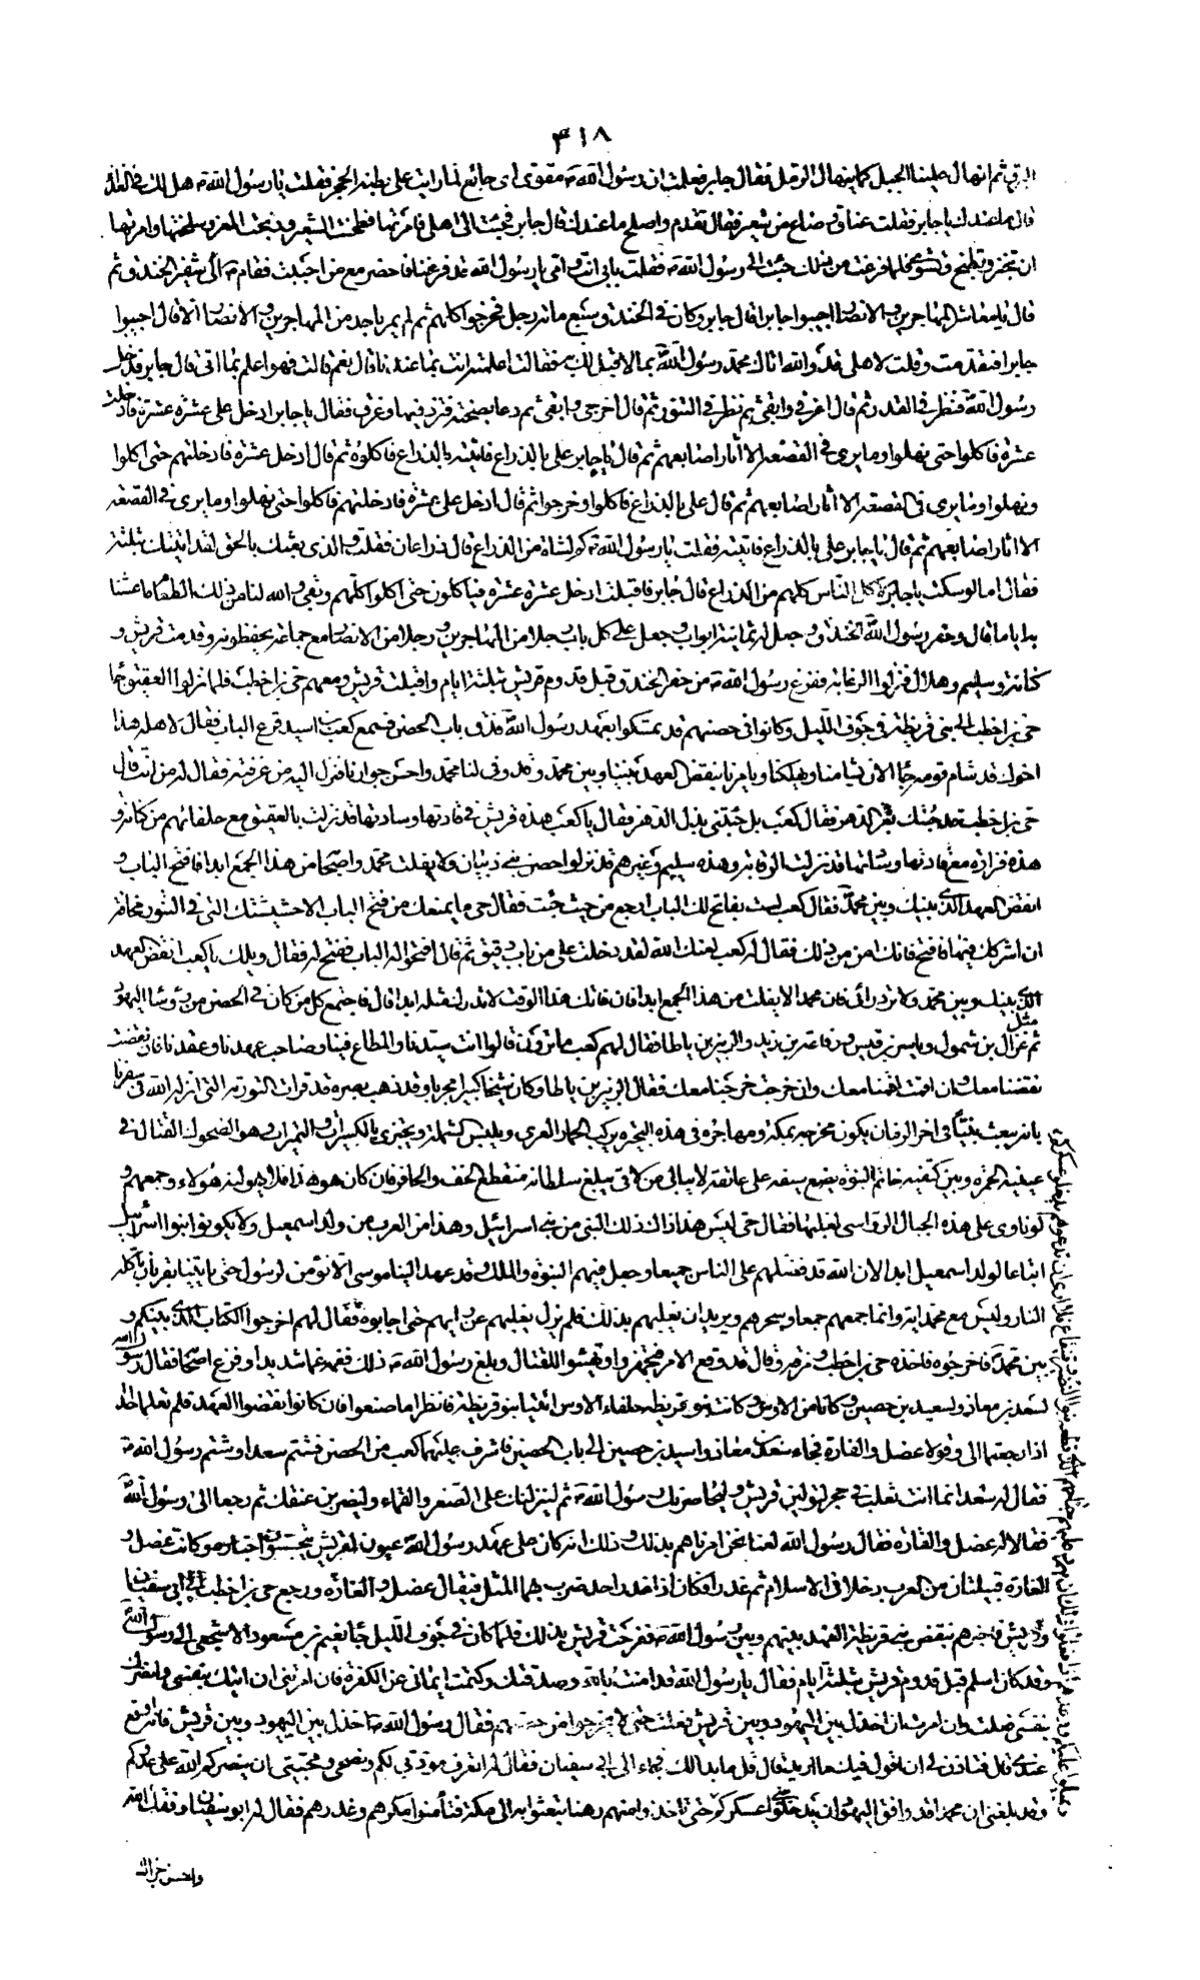 ٣١٨
البرق ثم انهال علينا الجبل كما ينهال الرمل فقال جابر فعلمت ان رسول الله ص مقوى اى جائع لما رايت على بطنه الحجر فقلت يا رسول الله ص هل لك فى الغذاء
قال ما عندك يا جابر فقلت عناق وصاع من شعير فقال تقدم واصلح ما عندك قال جابر فجئت الى اهلى فامرتها فطحنت الشعير وذبحت العنز وسلختها وامرتها
ان تخبز وتطبخ وتشوى فلما فرغت من ذلك جئت الى رسول الله ص فقلت بابى انت وامى يا رسول الله قد فرغنا فاحضر مع من احببت فقام ص الى شفير الخندق ثم
قال يا معاشر المهاجرين والانصار اجيبوا جابرا قال جابر وكان فى الخندق سبع مائة رجل فخرجوا كلهم ثم لم يمر باحد من المهاجرين والانصار الا قال اجيبوا
جابرا فتقدمت وقلت لاهلى قد والله اتاك محمد رسول الله ص بما لا قبل لك به فقالت اعلمته انت بما عندنا قال نعم قالت فهو اعلم بما اتى قال جابر فدخل
رسول الله ص فنظر فى القدر ثم قال اغرفى وابقى ثم نظر فى التنور ثم قال اخرجى وابقى ثم دعا بصحفة فثرد فيها وغرف فقال يا جابر ادخل على عشرة عشرة فادخلت
عشرة فاكلوا حتى نهلوا وما يرى فى القصعة الا اثار اصابعهم ثم قال يا جابر على بالذراع فاتيته بالذراع فاكلوه ثم قال ادخل عشرة فادخلتهم حتى اكلوا
ونهلوا وما يرى فى القصعة الا اثار اصابعهم ثم قال على بالذراع فاكلوا وخرجوا ثم قال ادخل على عشرة فادخلتهم فاكلوا حتى نهلوا وما يرى فى القصعة
الا اثار اصابعهم ثم قال يا جابر على بالذراع فاتيته فقلت يا رسول الله ص كم للشاة من الذراع قال ذراعان فقلت والذى بعثك بالحق لقد اتيتك بثلثة
فقال اما لو سكت يا جابر لاكل الناس كلهم من الذراع قال جابر فاقبلت ادخل عشرة عشرة فياكلون حتى اكلوا كلهم وبقى والله لنا من ذلك الطعام ما عشنا
به اياما قال وحفر رسول الله ص الخندق وجعل له ثمانية ابواب وجعل على كل باب رجلا من المهاجرين ورجلا من الانصار مع جماعة يحفظونه وقدمت قريش و
كنانة وسليم وهلال فنزلوا الرغابة ففرغ رسول الله ص من حفر الخندق قبل قدوم قريش بثلثة ايام واقبلت قريش ومعهم حى بن اخطب فلما نزلوا العقيق جاء
حى بن اخطب الى بنى قريظة فى جوف الليل وكانوا فى حصنهم قد تمسكوا بعهد رسول الله ص فدق باب الحصن فسمع كعب بن اسيد قرع الباب فقال لاهله هذا
اخوك قد شام قومه جاء الان يشامنا ويهلكنا ويامرنا بنقض العهد بيننا وبين محمد ص وقد وفى لنا محمد واحسن جوارنا فنزل اليه من غرفته فقال له من انت قال
حى بن اخطب قد جئتك بعز الدهر فقال كعب بل جئتنى بذل الدهر فقال يا كعب هذه قريش فى قادتها وسادتها قد نزلت بالعقيق مع حلفائهم من كنانة و
هذه فزارة مع قادتها وسادتها قد نزلت الرغابة وهذه سليم وغيرهم قد نزلوا حصن بنى ذبيان ولا يفلت محمد واصحابه من هذا الجمع ابدا فافتح الباب و
انقض العهد الذى بينك وبين محمد فقال كعب لست بفاتح لك الباب ارجع من حيث جئت فقال حى ما يمنعك من فتح الباب الا حشيشتك التى فى التنور مخافة
ان اشركك فيها فافتح فانك امن من ذلك فقال له كعب لعنك الله لقد دخلت على من باب دقيق ثم قال افتحوا له الباب ففتح له فقال ويلك يا كعب انقض العهد
الذى بينك وبين محمد ولا ترد رائى فان محمدا لا يفلت من هذا الجمع ابدا فان فاتك هذا الوقت لا تدرك مثله ابدا قال فاجتمع كل من كان فى الحصن من رؤساء اليهود
مثل
غزال بن شمول وياسر بن قيس ورفاعة بن زيد والزبير بن باطا فقال لهم كعب ما ترون قالوا انت سيدنا والمطاع فينا وصاحب عهدنا وعقدنا فان نقضت
نقضنا معك وان اقمت اقمنا معك وان خرجت خرجنا معك فقال الزبير بن باطا وكان شيخا كبيرا مجربا وقد ذهب بصره قد قرات التورية التى انزلها الله فى سفرنا
بانه يبعث نبيا فى اخر الزمان يكون مخرجه بمكة ومهاجره فى هذه البحيرة يركب الحمار العرى ويلبس الشملة ويجتزى بالكسيرات والتميرات وهو الضحوك القتال فى
عينيه الحمرة وبين كتفيه خاتم النبوة يضع سيفه على عاتقه لا يبالى من لاقى يبلغ سلطانه منقطع الخف والحافر فان كان هو هذا فلا يهولنه هؤلاء وجمعهم و
لو ناوى على هذه الجبال الرواسى لغلبها فقال حى ليس هذا ذاك ذلك النبى من بنى اسرائيل وهذا من العرب من ولد اسمعيل ولا يكونوا بنو اسرائيل
اتباعا لولد اسمعيل ابدا لان الله قد فضلهم على الناس جميعا وجعل فيهم النبوة والملك وقد عهد الينا موسى الا نؤمن لرسول حتى ياتينا بقربان تاكله
النار وليس مع محمد اية وانما جمعهم جمعا وسحرهم ويريد ان يغلبهم بذلك فلم يزل يقلبهم عن رايهم حتى اجابوه فقال لهم اخرجوا الكتاب الذى بينكم و
بين محمد ص فاخرجوه فاخذه حى بن اخطب ومزقه وقال قد وقع الامر فتجهزوا وتهيئوا للقتال وبلغ رسول الله ص ذلك فغمه غما شديدا وفزع اصحابه فقال رسول الله
لسعد بن معاذ ولسعيد بن حصين وكانا من الاوس وكانت بنو قريظة حلفاء الاوس ائتيا بنى قريظة فانظرا ما صنعوا فان كانوا نقضوا العهد فلم تعلما احدا
اذا رجعتما الى وقولا عضل والقارة فجاء سعد بن معاذ واسيد بن حصين الى باب الحصن فاشرف عليهما كعب من الحصن فشتم سعدا وشتم رسول الله ص
فقال له سعد انما انت ثعلب فى حجر لتولين قريش وليحاصرنك رسول الله ص ثم لينزلنك على الصغر والقماء وليضربن عنقك ثم رجعا الى رسول الله ص
فقالا له عضل والقارة فقال رسول الله لعنا نحن امرناهم بذلك وذلك انه كان على عهد رسول الله عيون لقريش يتجسسون اخباره وكانت عضل و
القارة قبيلتان من العرب دخلا فى الاسلام ثم غدرا وكان اذا غدر احد ضرب بهما المثل فيقال عضل والقارة ورجع حى بن اخطب الى ابى سفيان
وقريش فاخبرهم بنقض بنى قريظة العهد بينهم وبين رسول الله ص ففرحت قريش بذلك فلما كان فى جوف الليل جاء نعيم بن مسعود الاشجعى الى رسول الله ص
وقد كان اسلم قبل قدوم قريش بثلثة ايام فقال يا رسول الله قد امنت بالله وصدقتك وكتمت ايمانى عن الكفرة فان امرتنى ان اتيك بنفسى وانصرك
بنفسى فعلت وان امرت ان اخذل بين اليهود وبين قريش فعلت حتى لا يخرجوا من حصنهم فقال رسول الله ص اخذل بين اليهود وبين قريش فانه اوقع
عندى قال فتاذن لى ان اقول فيك ما اريد قال قل ما بدا لك فجاء الى ابى سفيان فقال له تعرف مودتى لكم ونصحى ومحبتى ان ينصركم الله على عدوكم
وقد بلغنى ان محمدا قد وافق اليهود ان يدخلوا عسكركم حتى تاخذوا منهم رهنا يبعثوا به الى مكة فتامنوا مكرهم وغدرهم فقال له ابو سفيان وفقك الله
واحسن جزاك